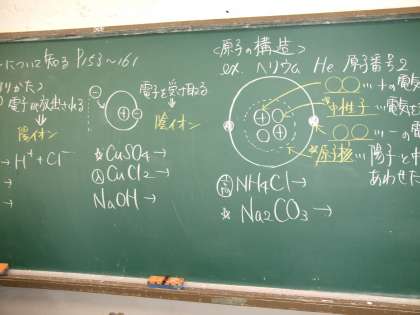 について知る P153~161
電子が放出される
陽イオン
→ H⁺ + Cl⁻
→
→
電子を受け取る
陰イオン
☆CuSO₄ →
CuCl₂ →
NaOH →
<原子の構造>
ex. ヘリウム He 原子番号2
○○… +の電気
中性子… 電気
○○… -の電気
☆原子核… 陽子と中
あわせた
NH₄Cl →
☆ Na₂CO₃ →